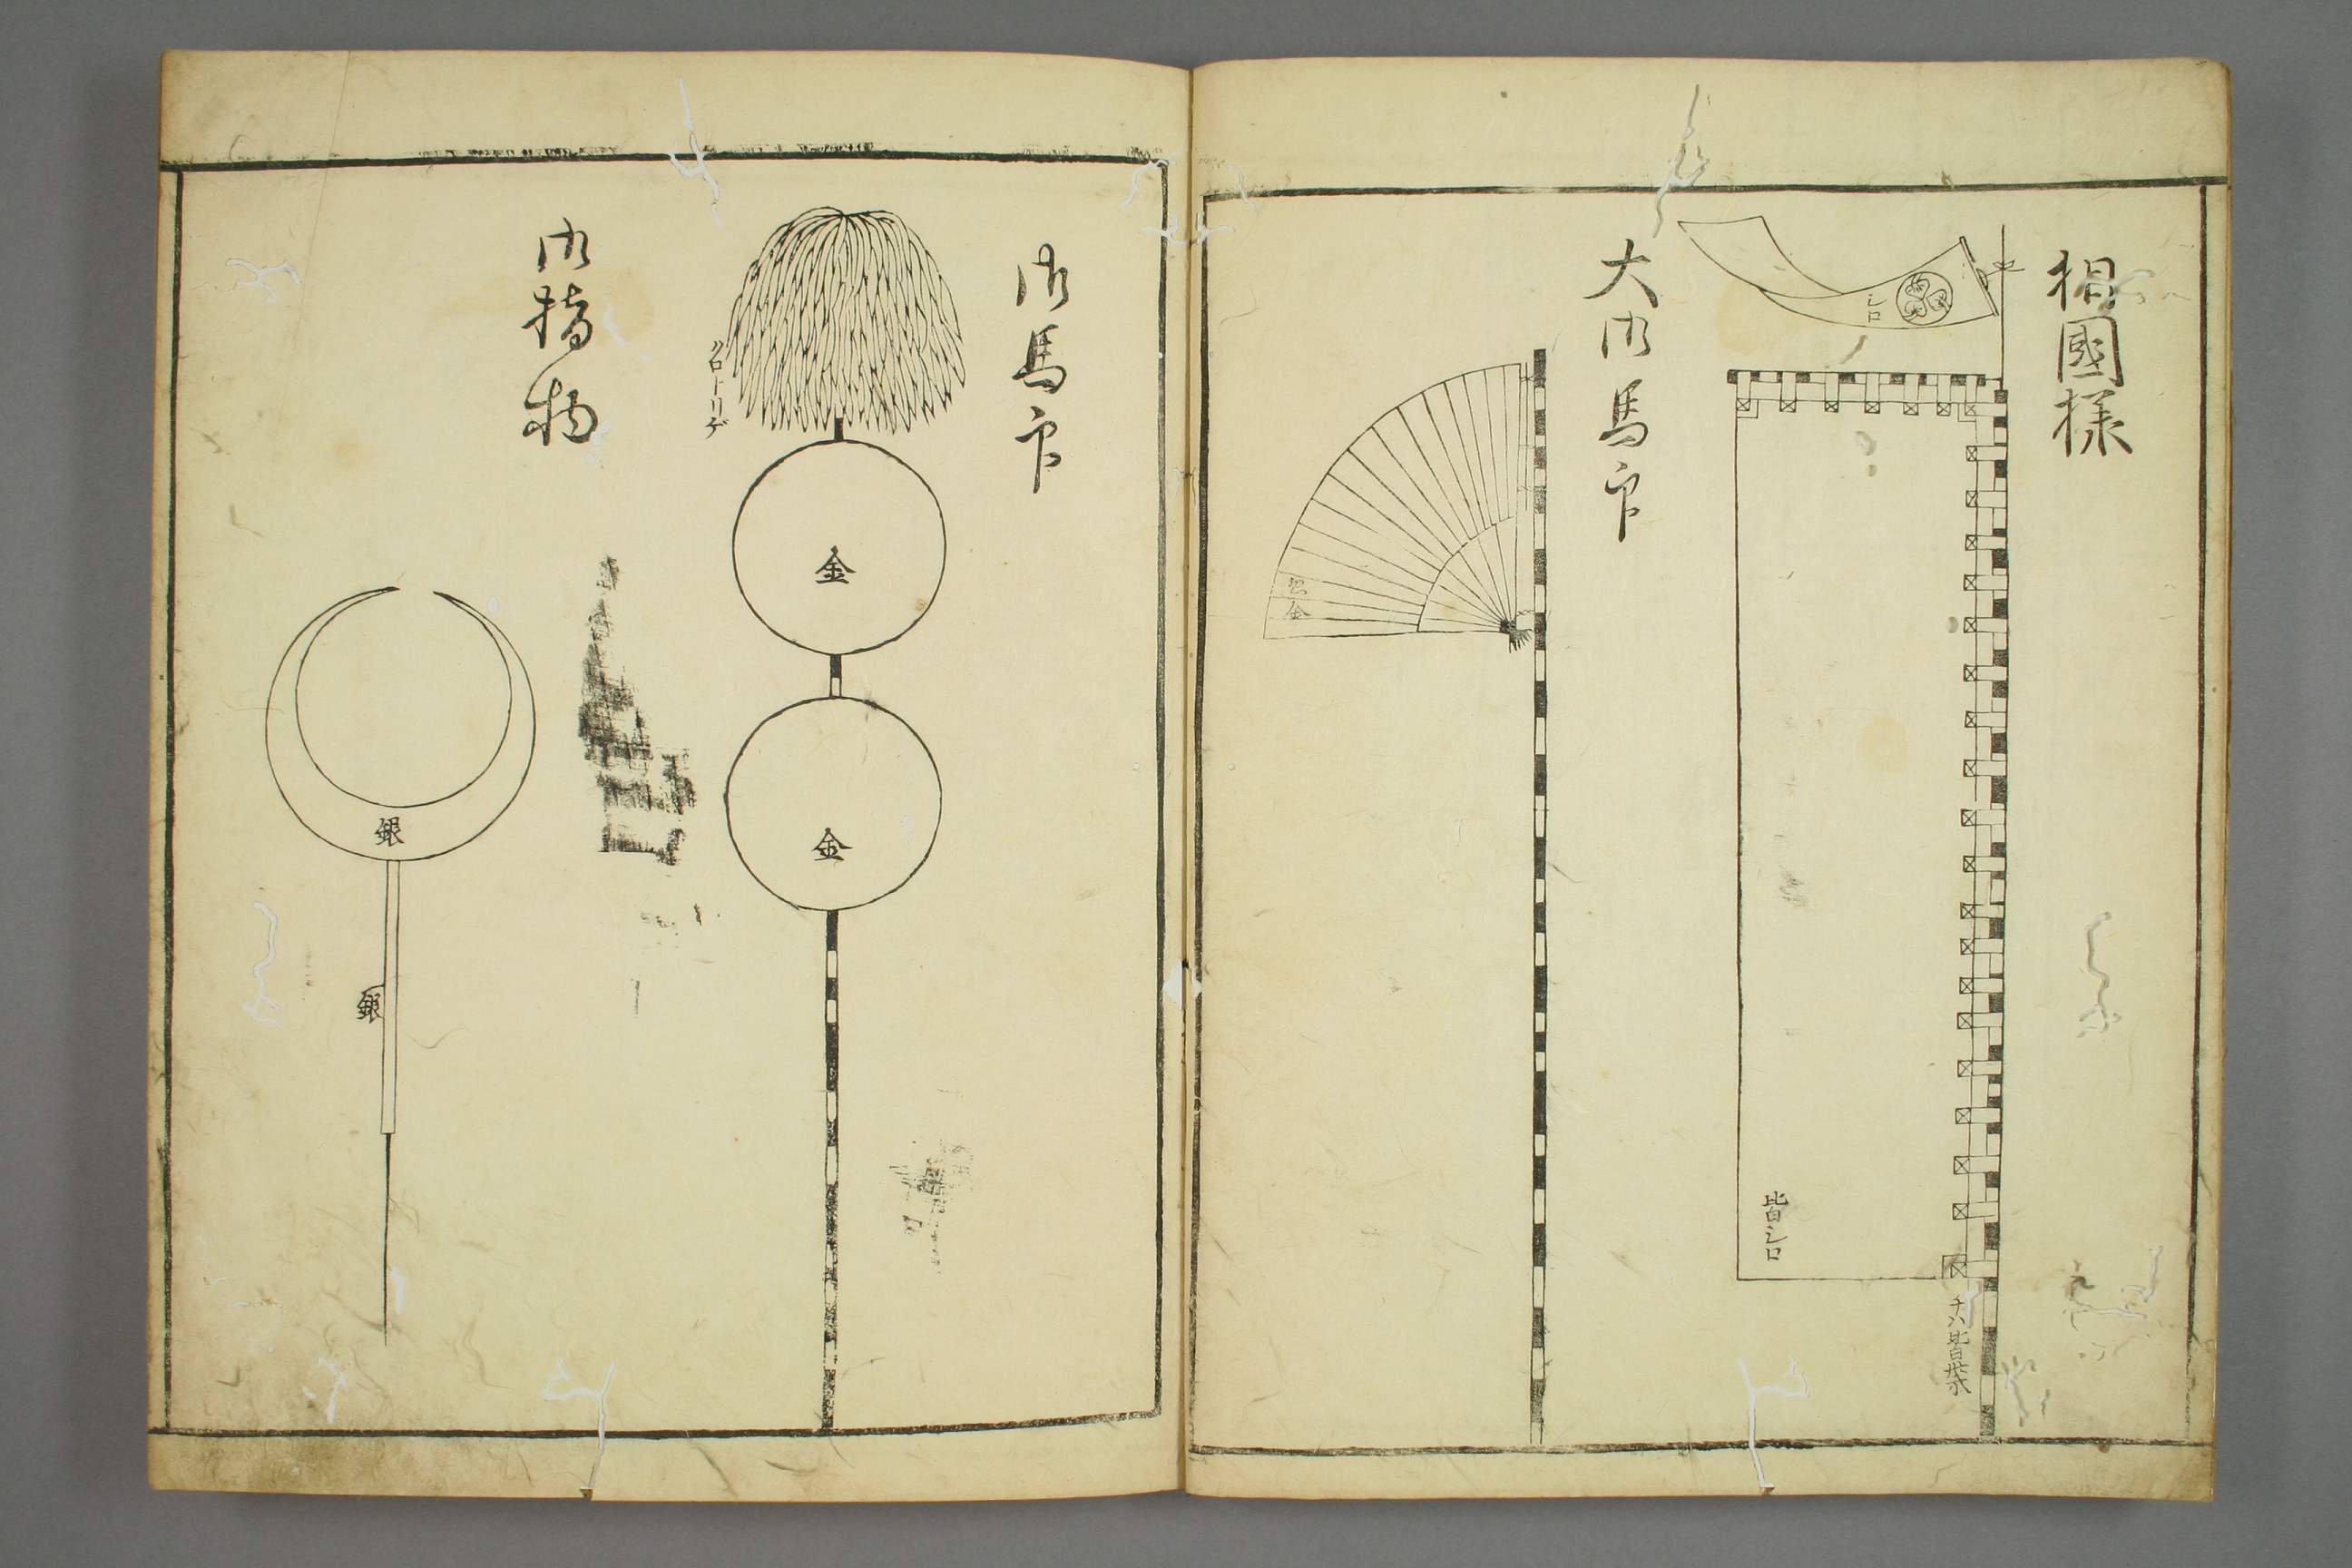 相國様
シロ
皆シロ
チハ皆紫
大御馬印
惣金
御馬印
クロトリゲ
金
金
御指物
銀
銀